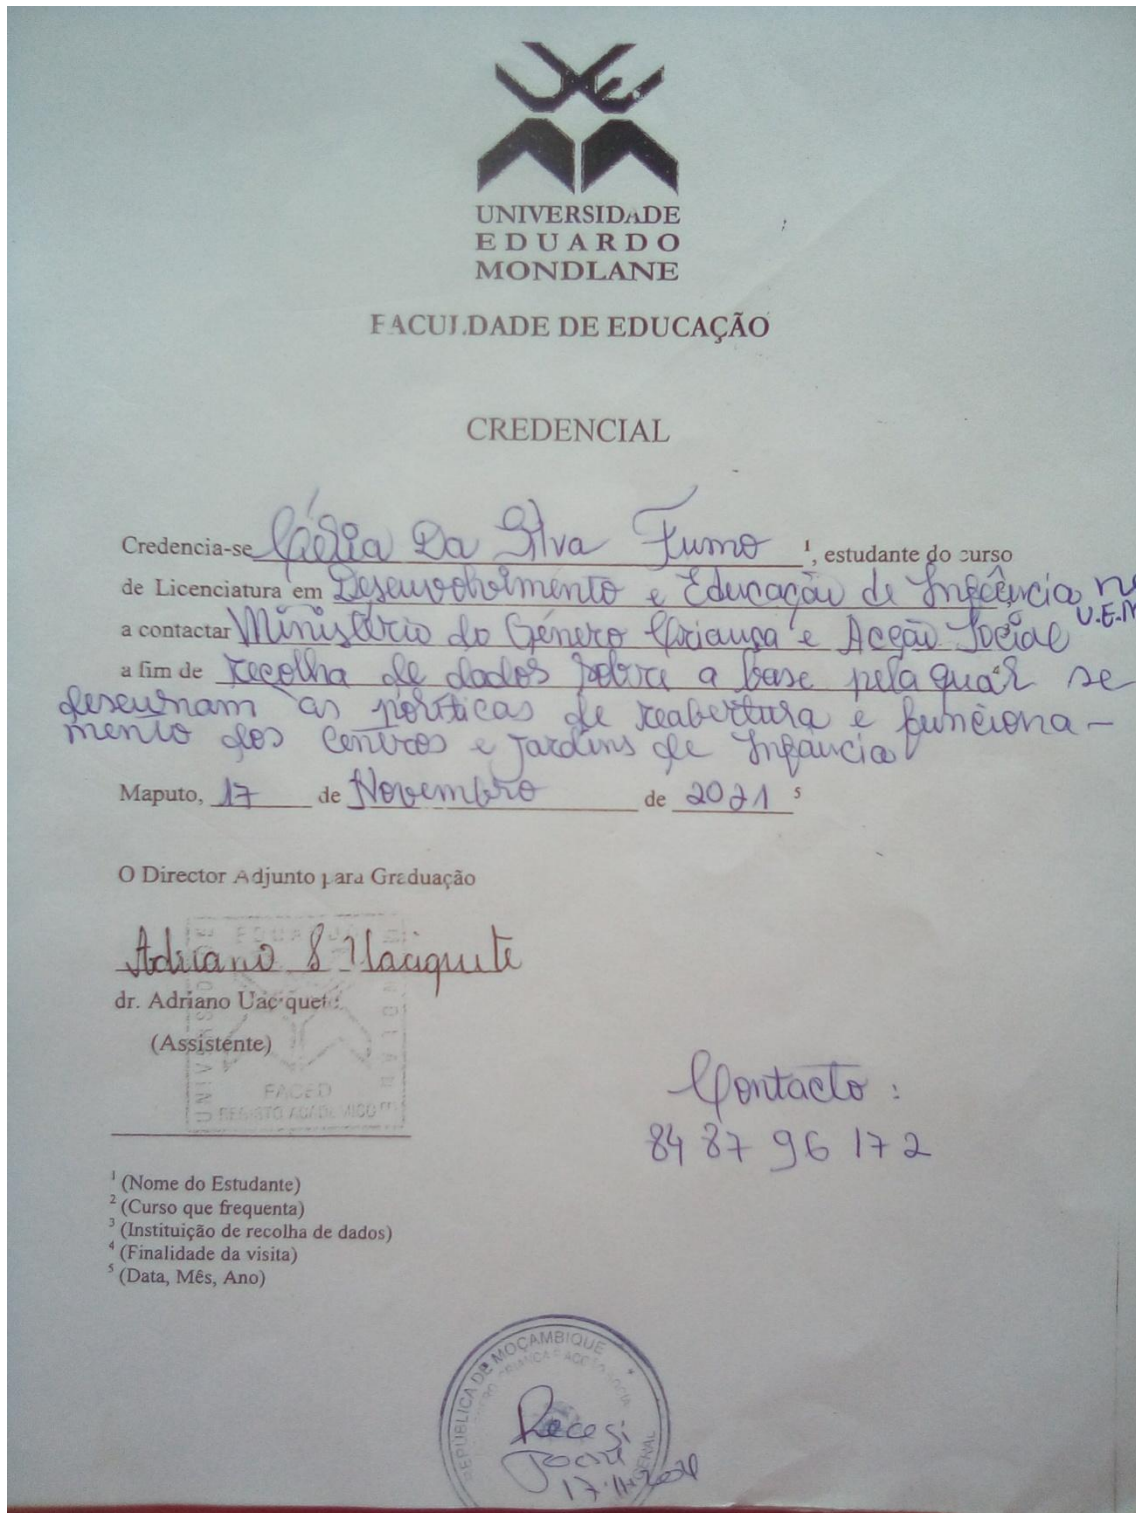 UNIVERSIDADE
EDUARDO
MONDLANE
FACULDADE DE EDUCAÇÃO
CREDENCIAL
Credencia-se Célia Da Silva Fumo ¹, estudante do curso
de Licenciatura em Desenvolvimento e Educação de Infância na
U.E.M
a contactar Ministério do Género Criança e Acção Social
a fim de recolha de dados sobre a base pela qual se
desenham as políticas de reabertura e funciona-
mento dos centros e jardins de Infância
Maputo, 17 de Novembro de 2021 ⁵
O Director Adjunto para Graduação
Adriano S Uaciquete
dr. Adriano Uaciquete
(Assistente)
FACED
REGISTO ACADEMICO
Contacto :
84 87 96 172
¹ (Nome do Estudante)
² (Curso que frequenta)
³ (Instituição de recolha de dados)
⁴ (Finalidade da visita)
⁵ (Data, Mês, Ano)
REPÚBLICA DE MOÇAMBIQUE
Recebi